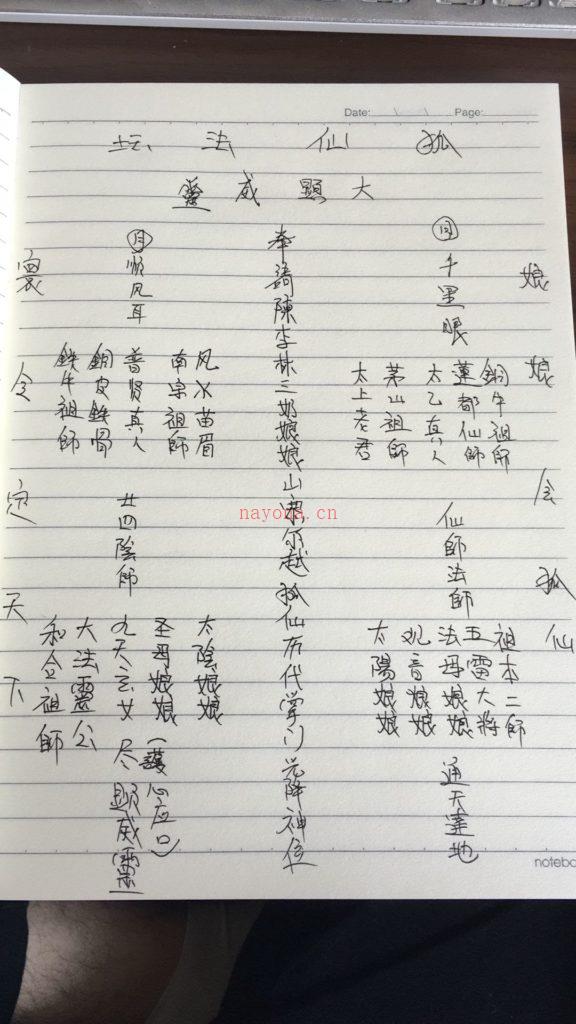 Date: Page:
狐仙法坛
大顯威靈
娘娘会狐仙
日千里眼
銅牛祖師
蓮都仙師
太乙真人
茅山祖師
太上老君
仙師法師
祖本二師
五雷大將
法母娘娘
观音娘娘
太陽娘娘
通天達地
奉請陳李林三奶娘娘山尔越狐仙历代掌门降神位
月順风耳
风火苗眉
南宗祖師
普贤真人
銅皮鉄骨
鉄牛祖師
廿四陰師
太陰娘娘
圣母娘娘
九天玄女
大法靈公
和合祖師
(護心应口)
尽顯威靈
令定天下
nayona.cn
notebo